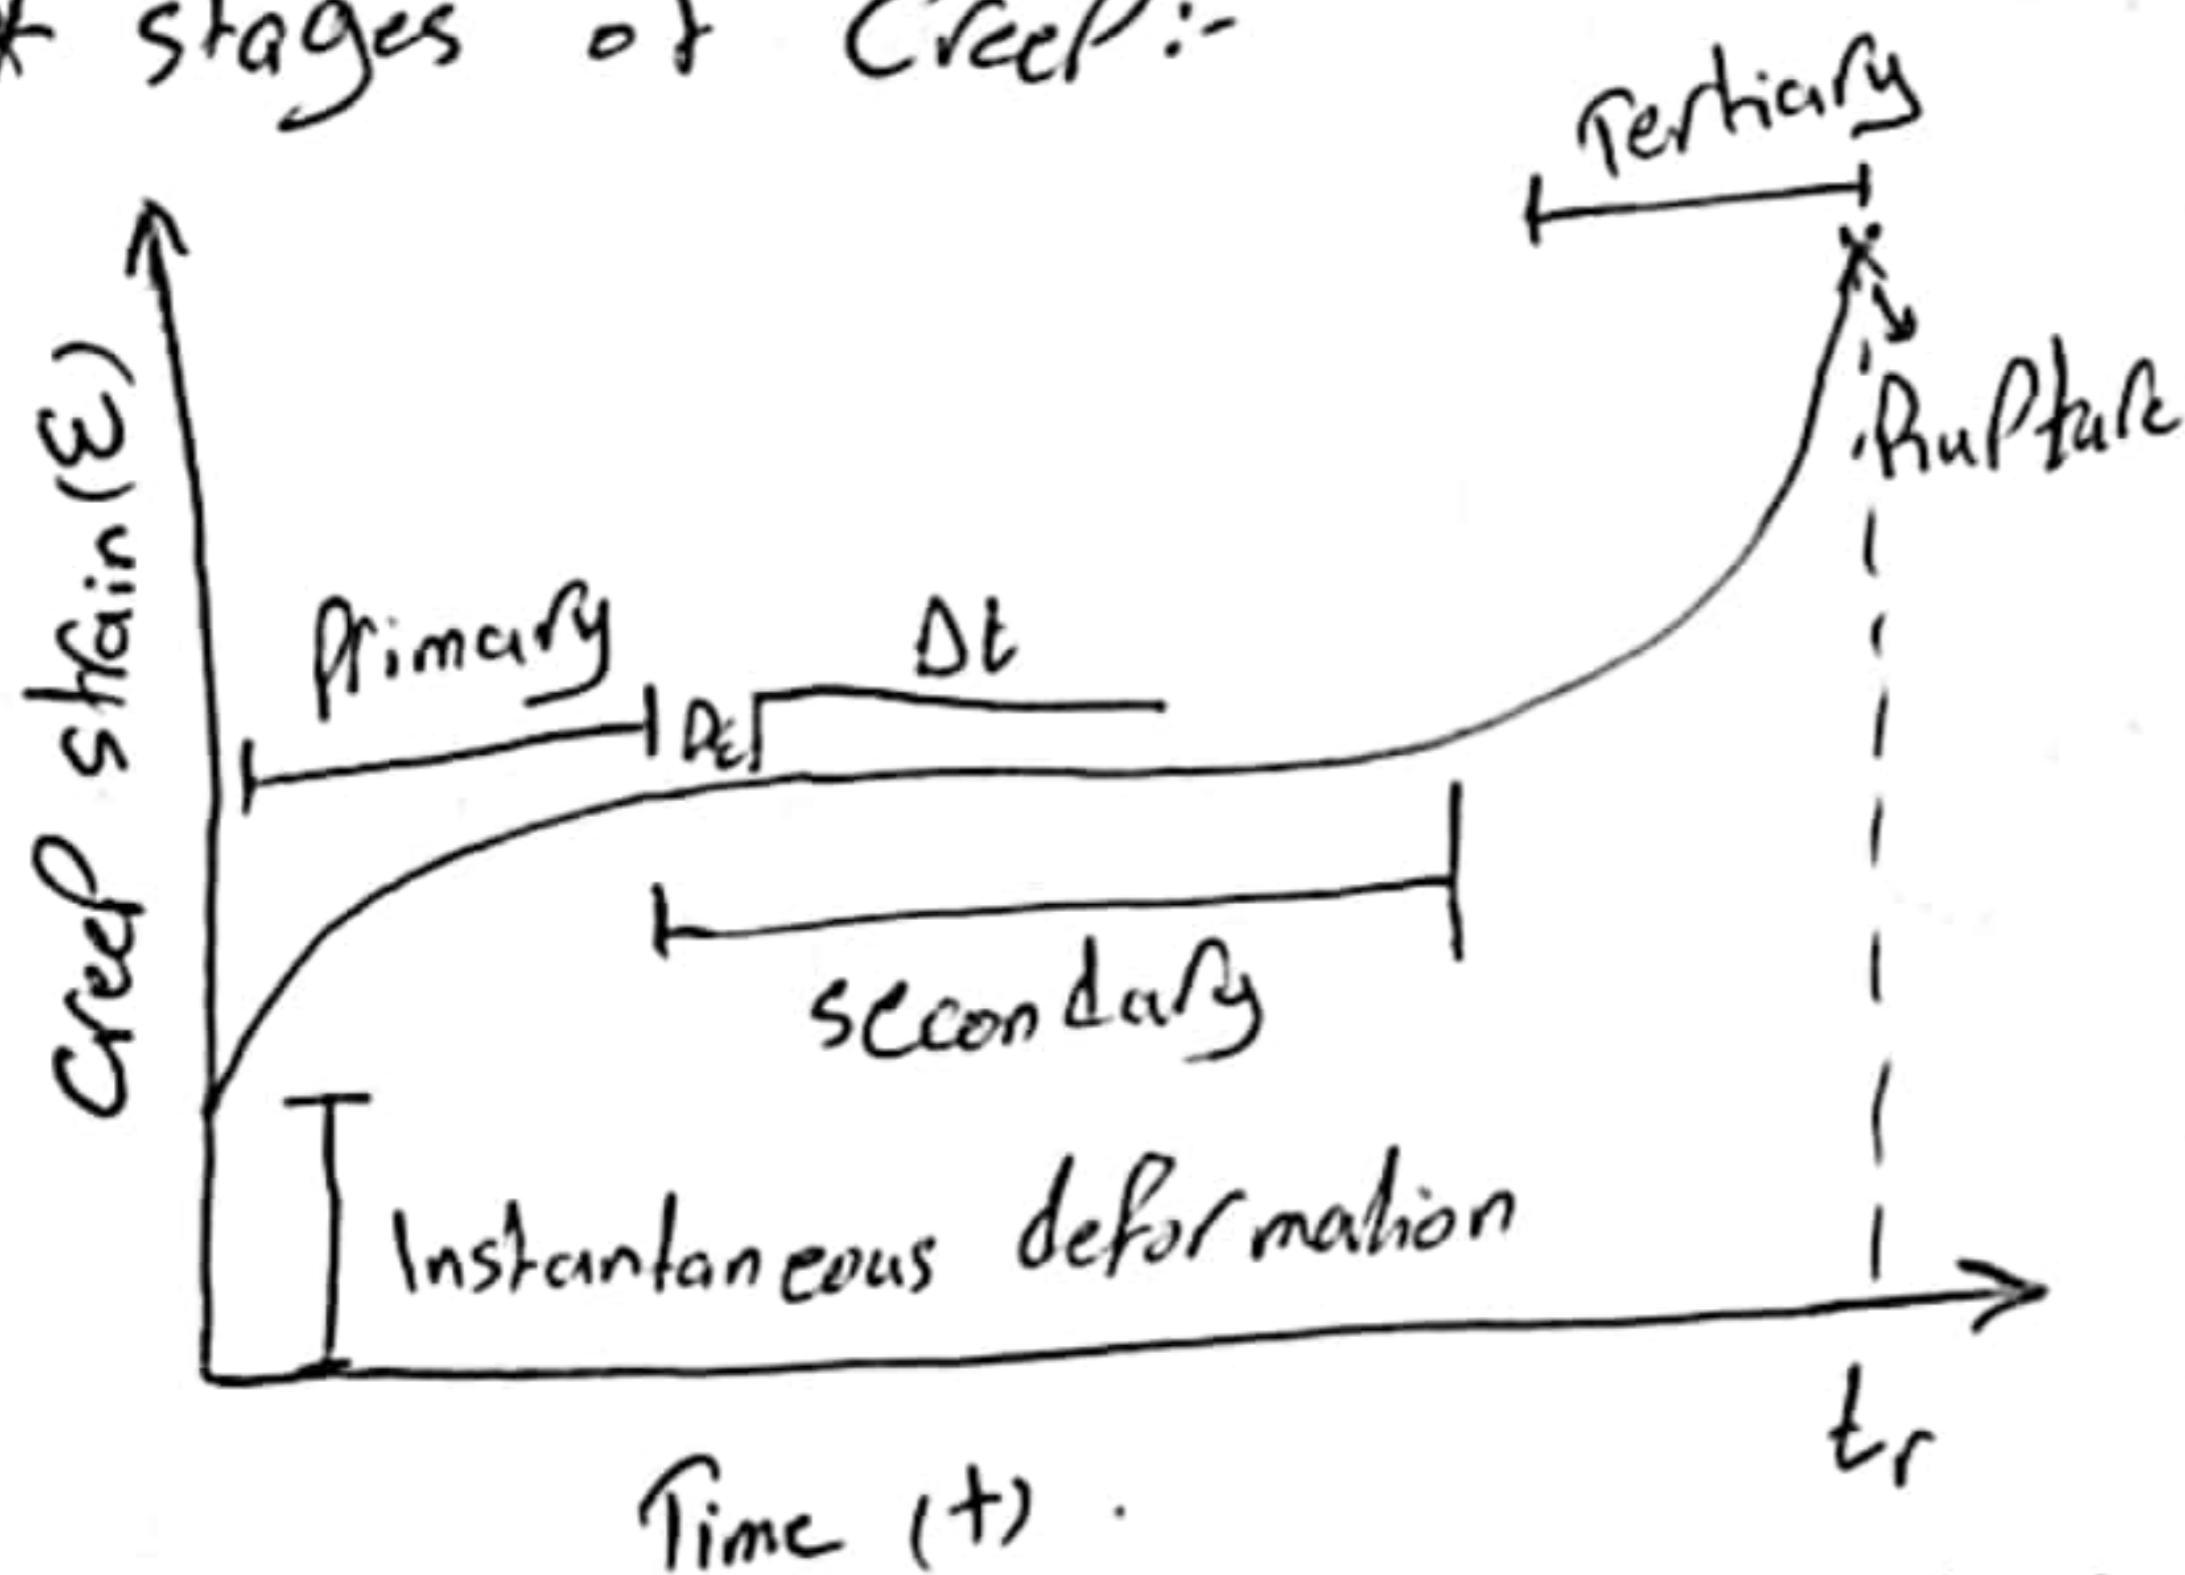 * stages of Creep:-
Tertiary
Rupture
Creep strain (ε)
Primary
Δε
Δt
secondary
Instantaneous deformation
tr
Time (t).